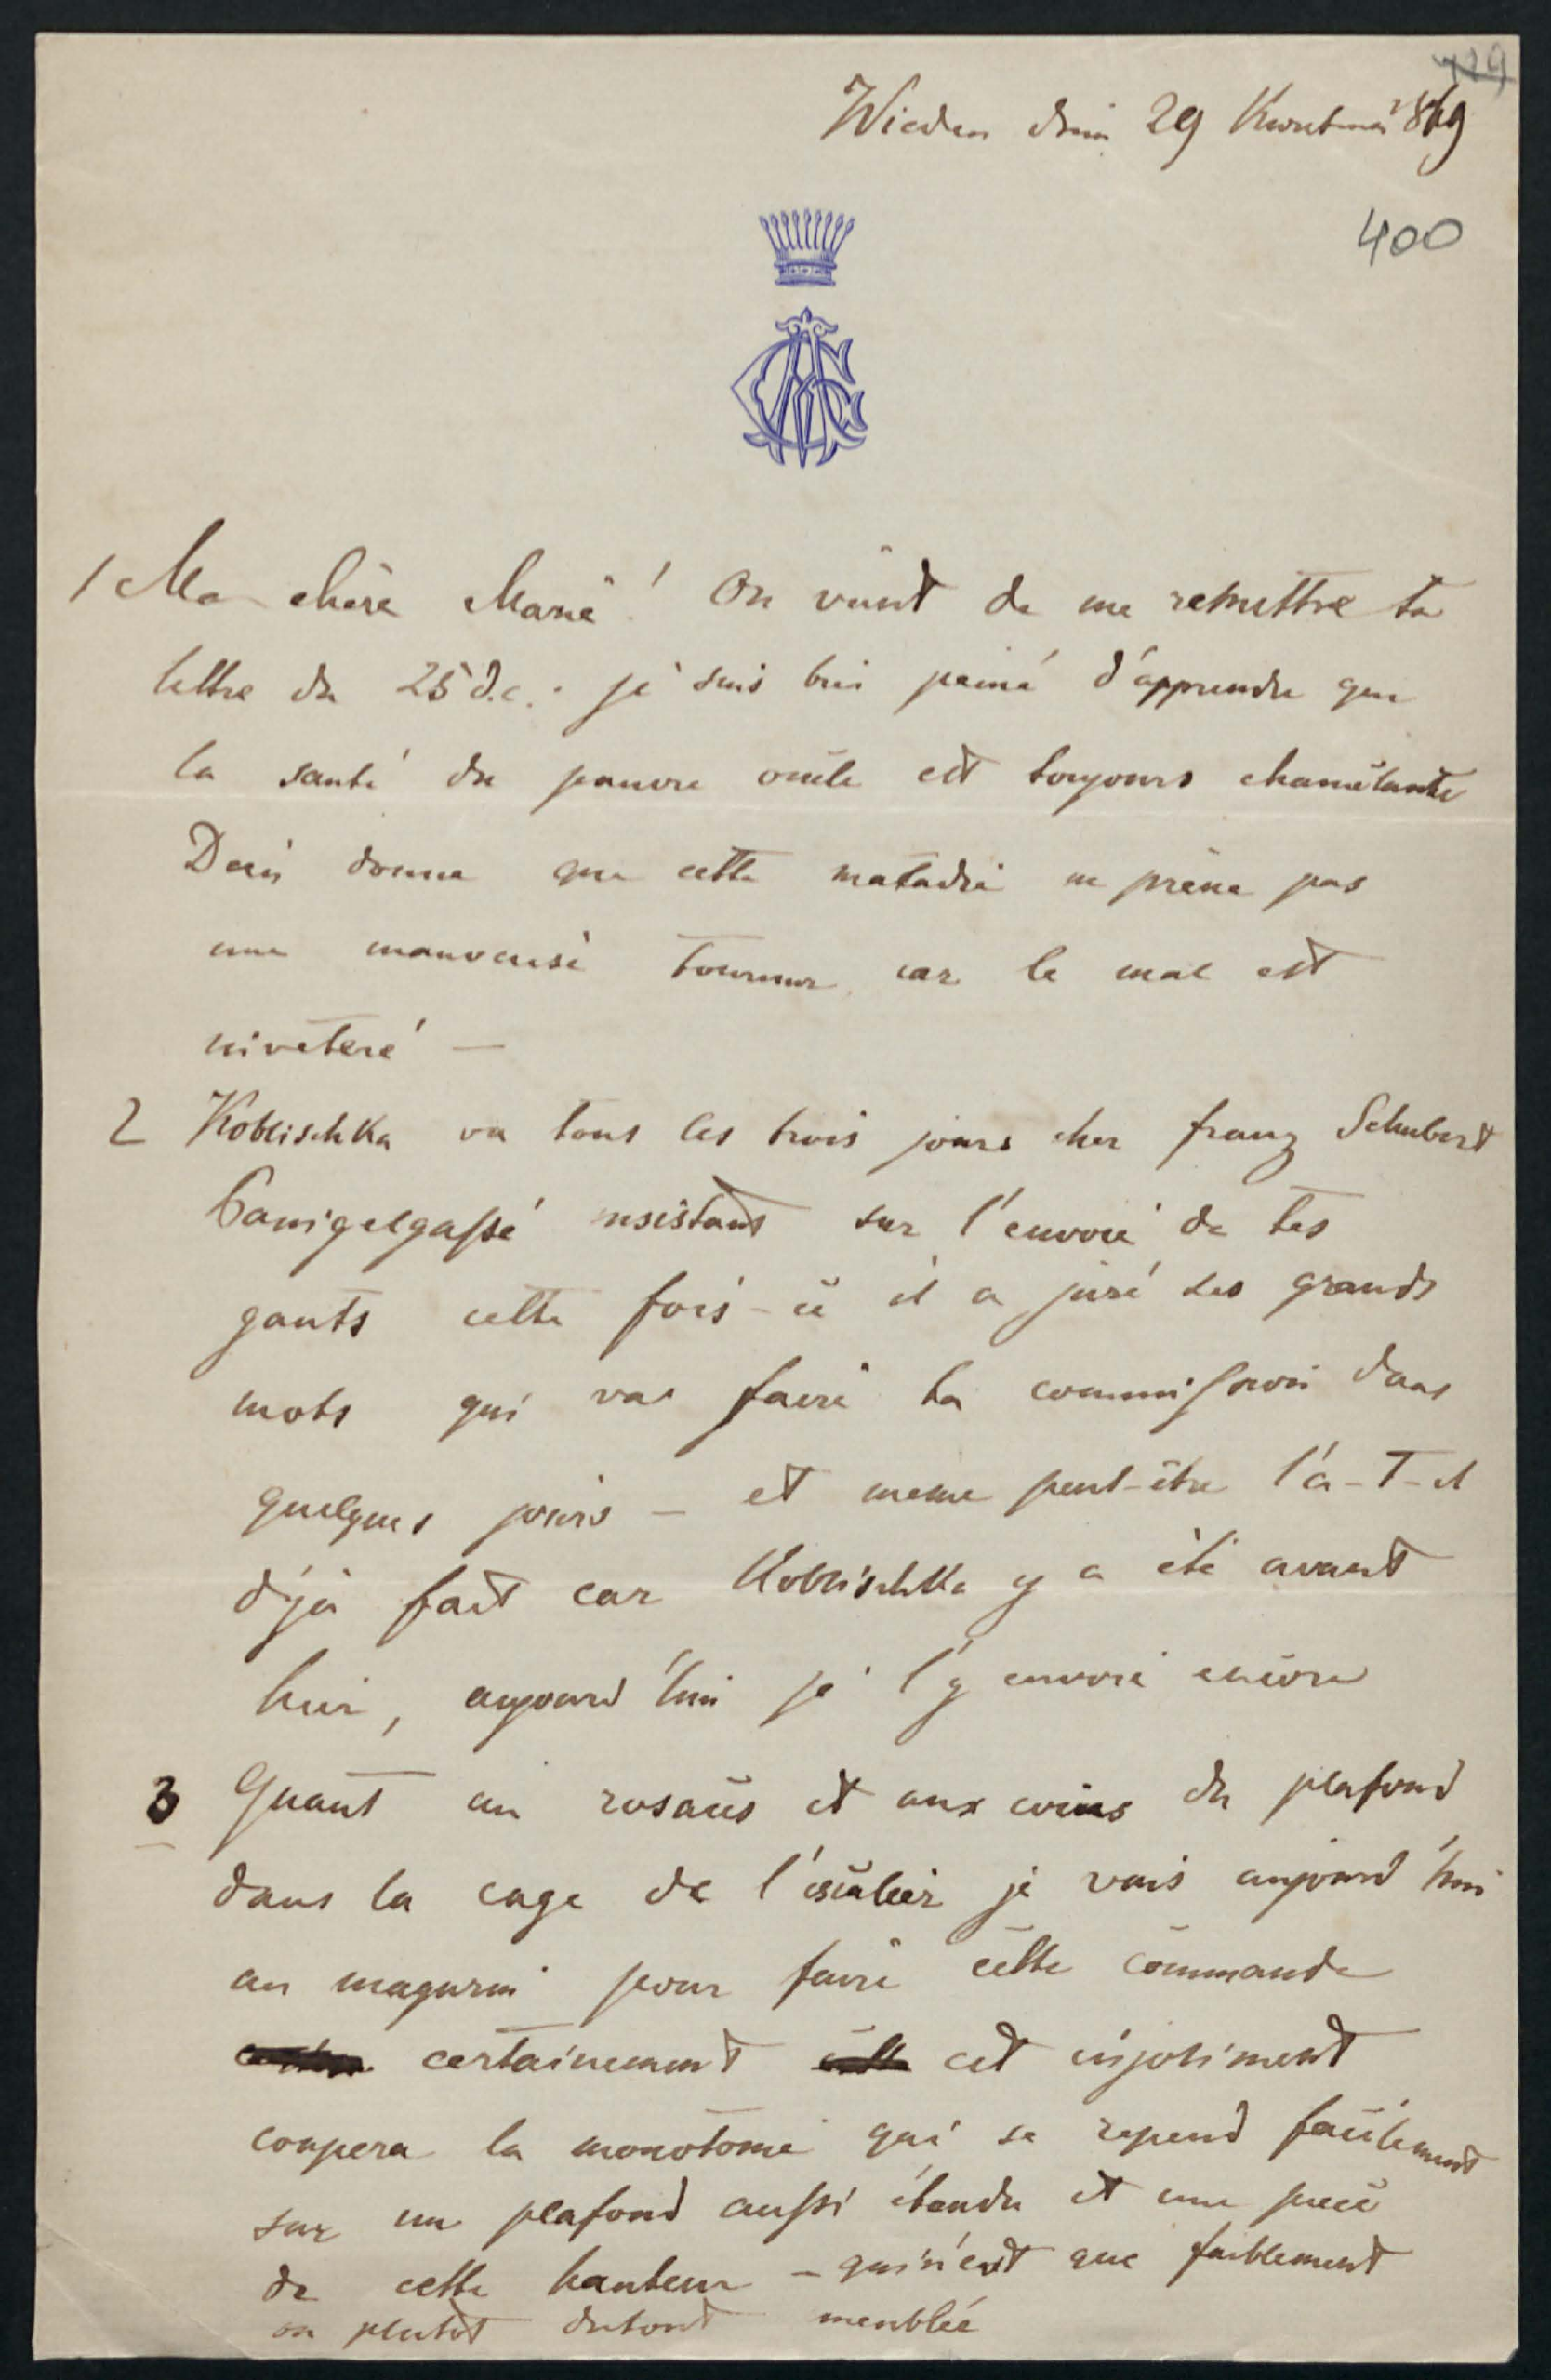 429
Wieden dnia 29 Kwietnia 1869
400
1 Ma chère Marie! On vient de me remettre ta
lettre du 25 d.c. je suis bien peiné d'apprendre que
la santé du pauvre oncle est toujours chancelante
Dieu donne que cette maladie ne prène pas
une mauvaise tournure car le mal est
inveteré —
2 Koblischka va tous les trois jours chez franz Schubert
insistant sur l'envoie de tes
gants cette fois-ci il a juré ses grands
mots qui vas faire ta commission dans
quelques jours — et meme peut-être l'a-T-il
déjà fait car Koblischka y a été avant
hier, aujourd'hui je l'y envoie encore
3 Quant au rosaces et aux coins du plafond
dans la cage de l'escalier je vais aujourd'hui
au magasin pour faire cette commande
certainement cet enjoliment
coupera la monotonie qui se repend facilement
sur un plafond aussi étendu et une pièce
de cette hauteur — qui n'est que faiblement
ou plutot dutout meublée